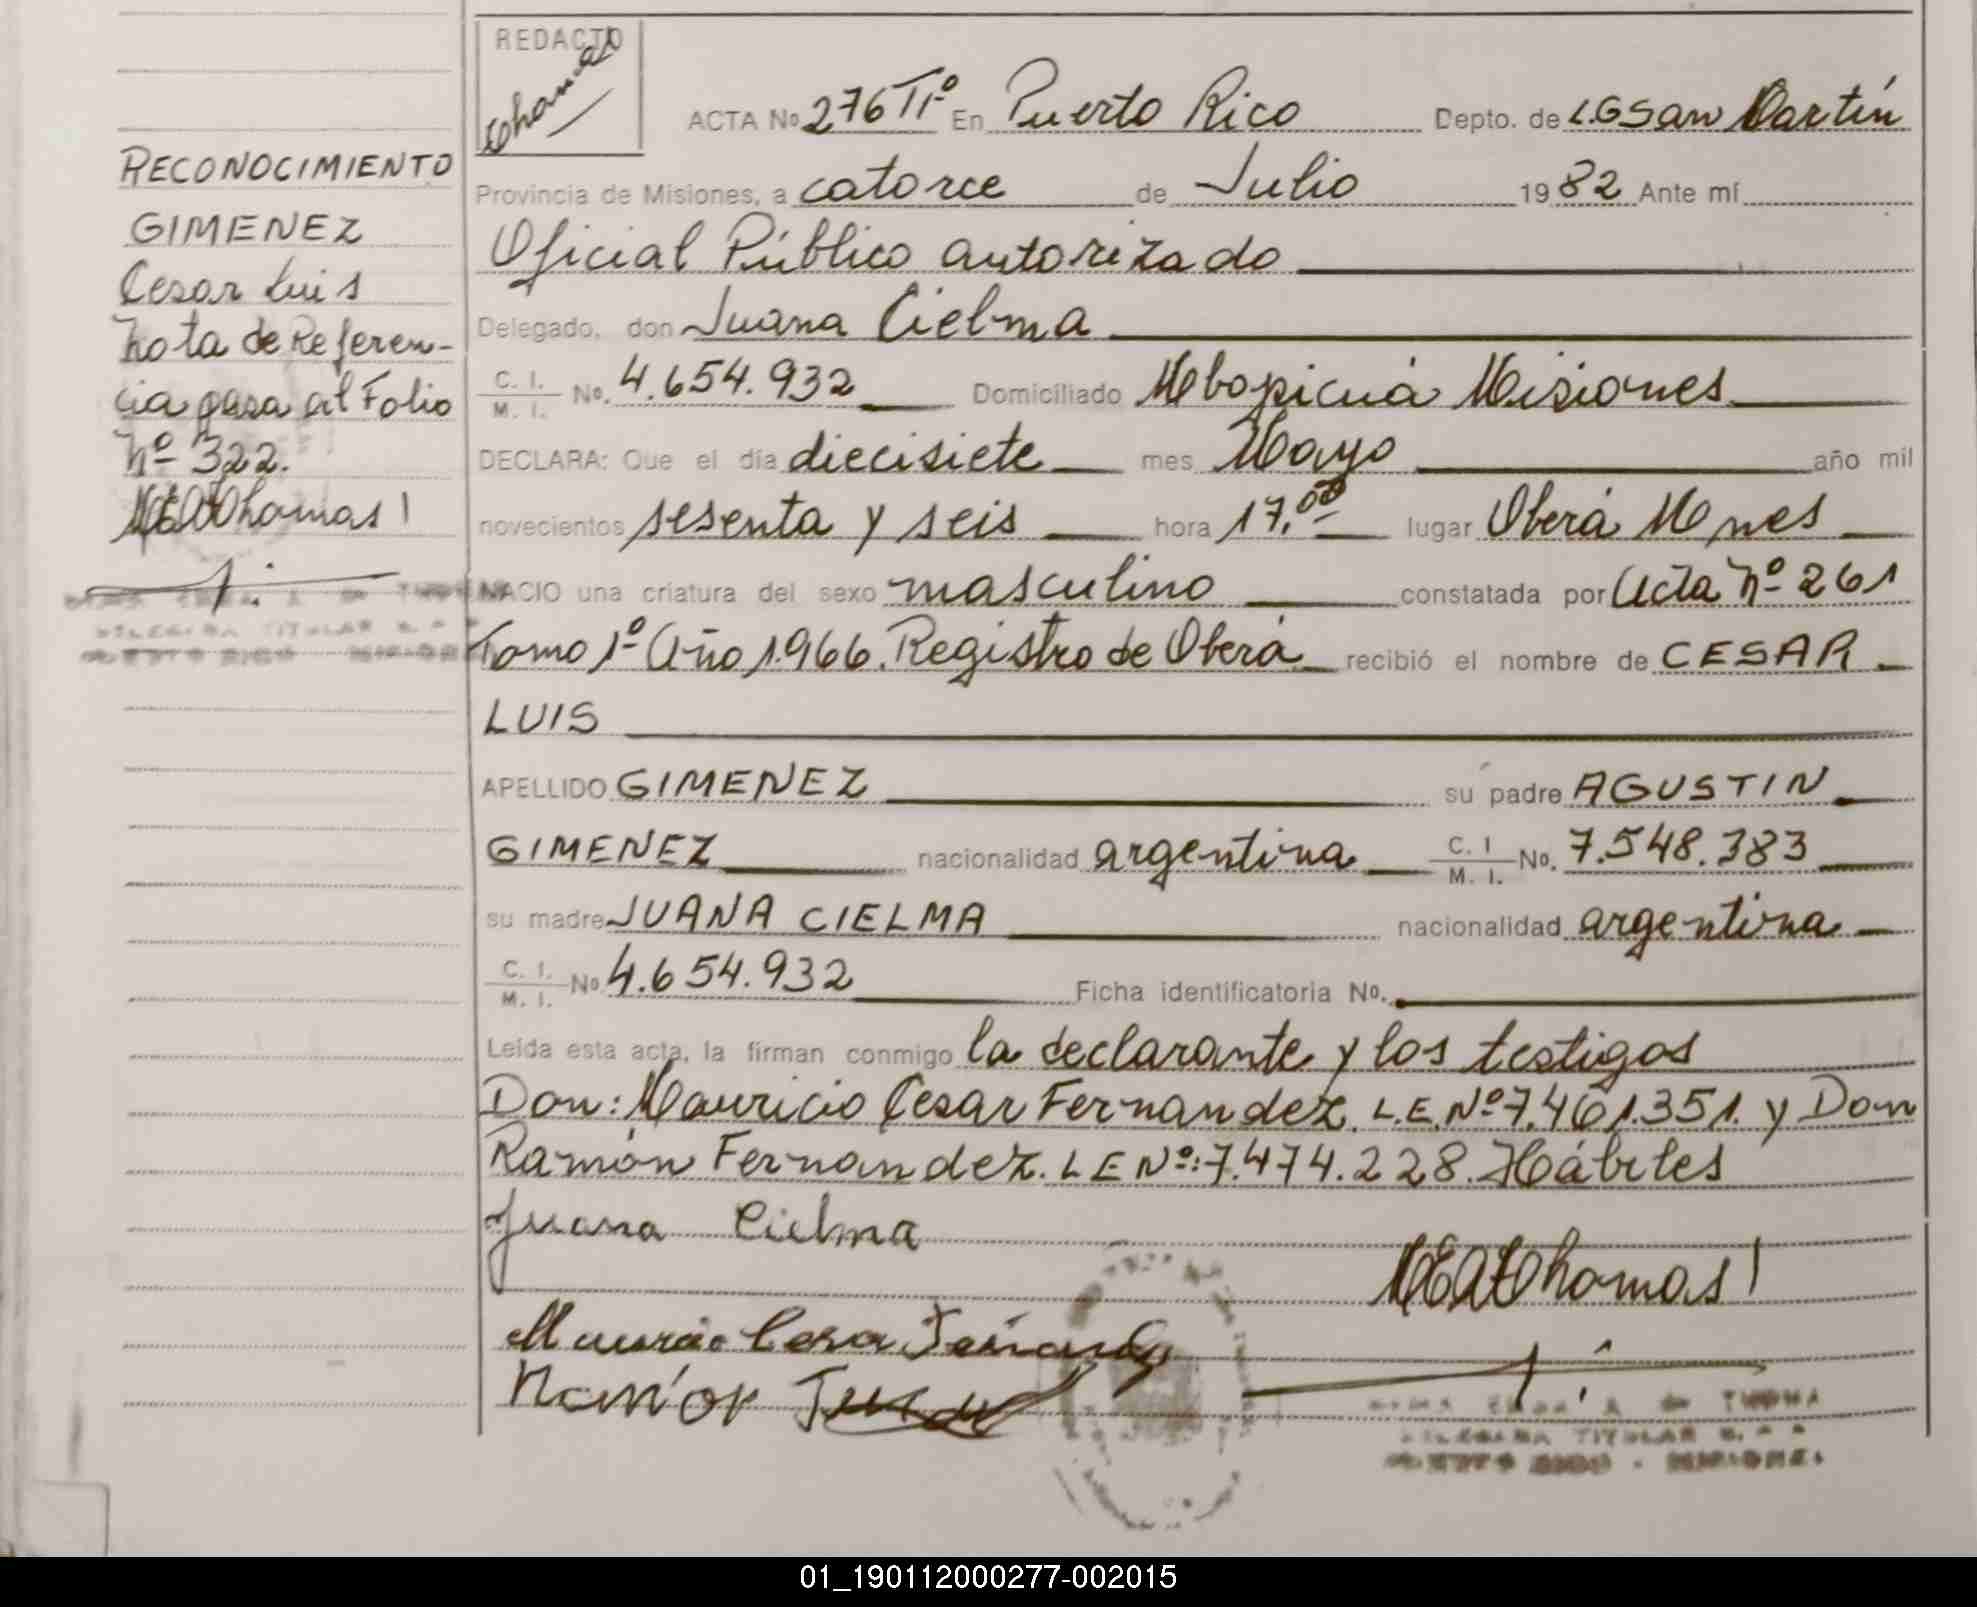 RECONOCIMIENTO
GIMENEZ
Cesar Luis
Nota de Referen-
cia pasa al Folio
Nº 322.
REDACTO
ACTA No 276 Tº 1º En Puerto Rico Depto. de L.G San Martín
Provincia de Misiones, a catorce de Julio 1982 Ante mí
Oficial Público autorizado
Delegado, don Juana Cielma
C. I. / M. I. No. 4.654.932 Domiciliado Mbopicuá Misiones
DECLARA: Que el día diecisiete mes Mayo año mil
novecientos sesenta y seis hora 17,00 lugar Oberá Mnes
NACIO una criatura del sexo masculino constatada por Acta Nº 261
Tomo 1º Año 1966. Registro de Oberá recibió el nombre de CESAR
LUIS
APELLIDO GIMENEZ su padre AGUSTIN
GIMENEZ nacionalidad argentina C. I / M. I. No. 7.548.383
su madre JUANA CIELMA nacionalidad argentina
C. I. / M. I. No 4.654.932 Ficha identificatoria No.
Leída esta acta, la firman conmigo la declarante y los testigos
Don: Mauricio Cesar Fernandez. L.E.Nº 7.461.351. y Don
Ramón Fernandez. L E Nº: 7.474.228. Hábiles
Juana Cielma
DELEGADA TITULAR
PUERTO RICO - MISIONES
01_190112000277-002015